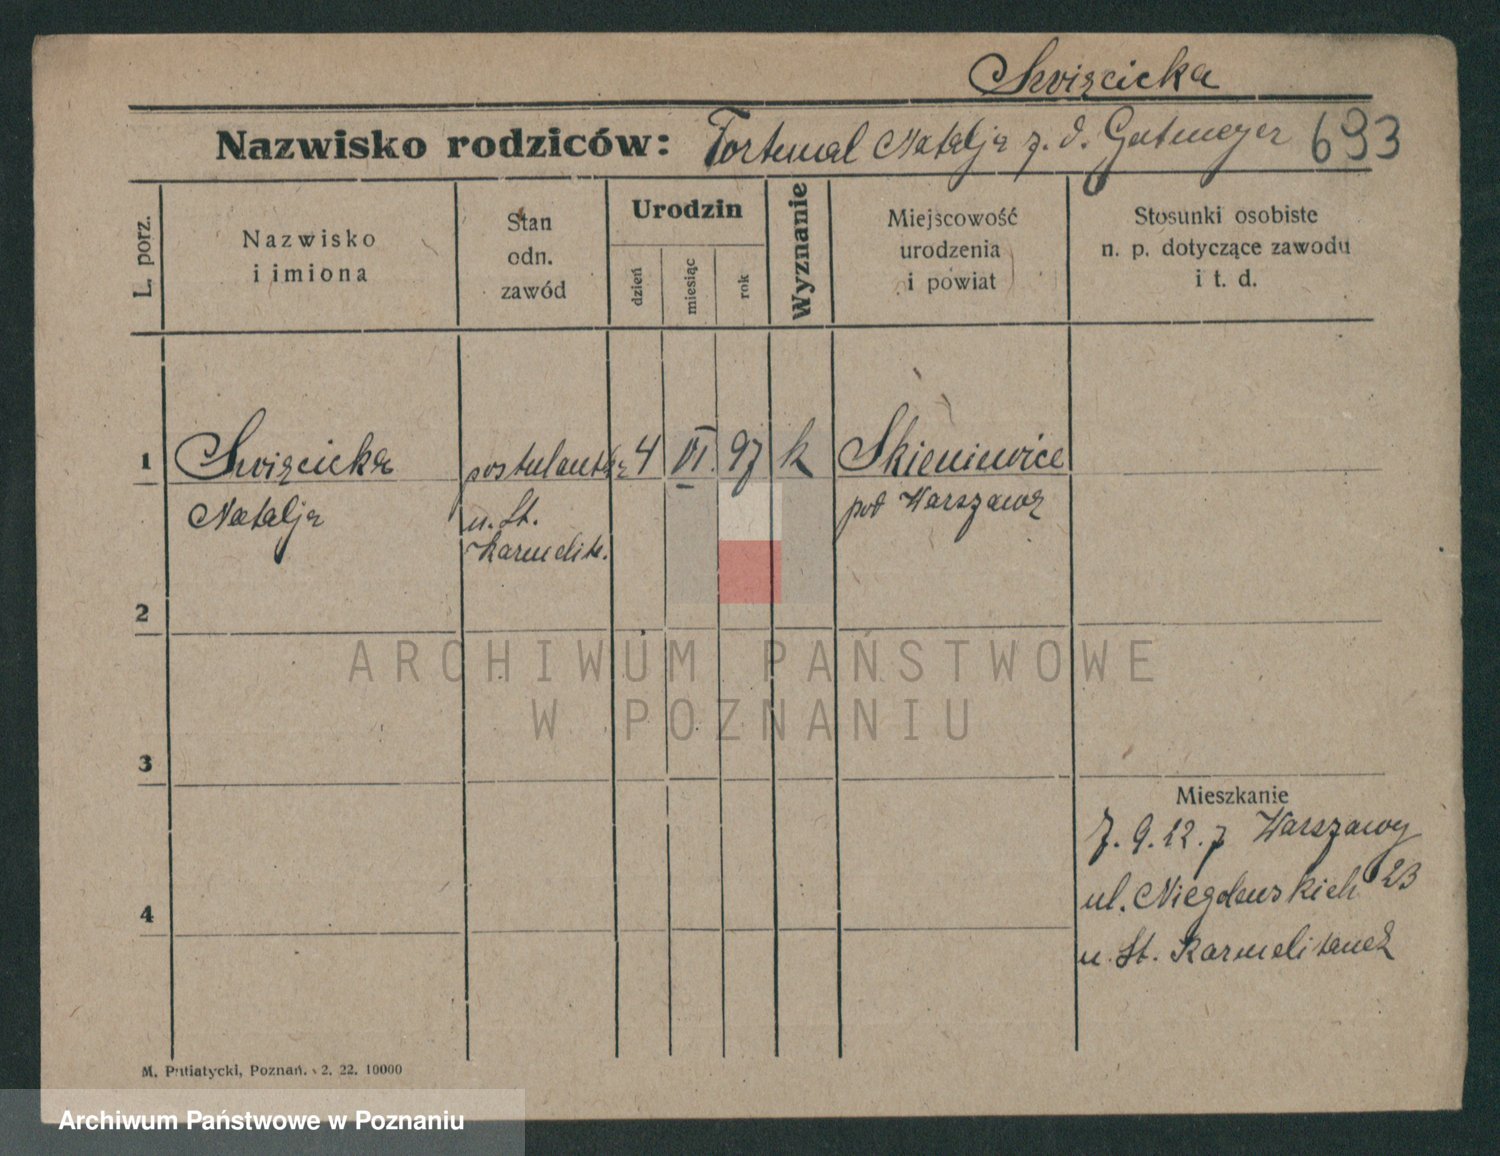 Swięcicka
Nazwisko rodziców: Fortunal Natalja z. d. Gutmeyer 693
L. porz.
Nazwisko
i imiona
Stan
odn.
zawód
Urodzin
dzień
miesiąc
rok
Wyznanie
Miejscowość
urodzenia
i powiat
Stosunki osobiste
n. p. dotyczące zawodu
i t. d.
1 Swięcicka postulantka 4 VI. 97 k Skieniewice
Natalja u. St. pod Warszawą
Karmelit.
2
ARCHIWUM PAŃSTWOWE
W POZNANIU
3
Mieszkanie
7. 9. 22. z Warszawy
ul. Niegolewskich 23
4
u. St. Karmelitanek
M. Putiatycki, Poznań. 2. 22. 10000
Archiwum Państwowe w Poznaniu